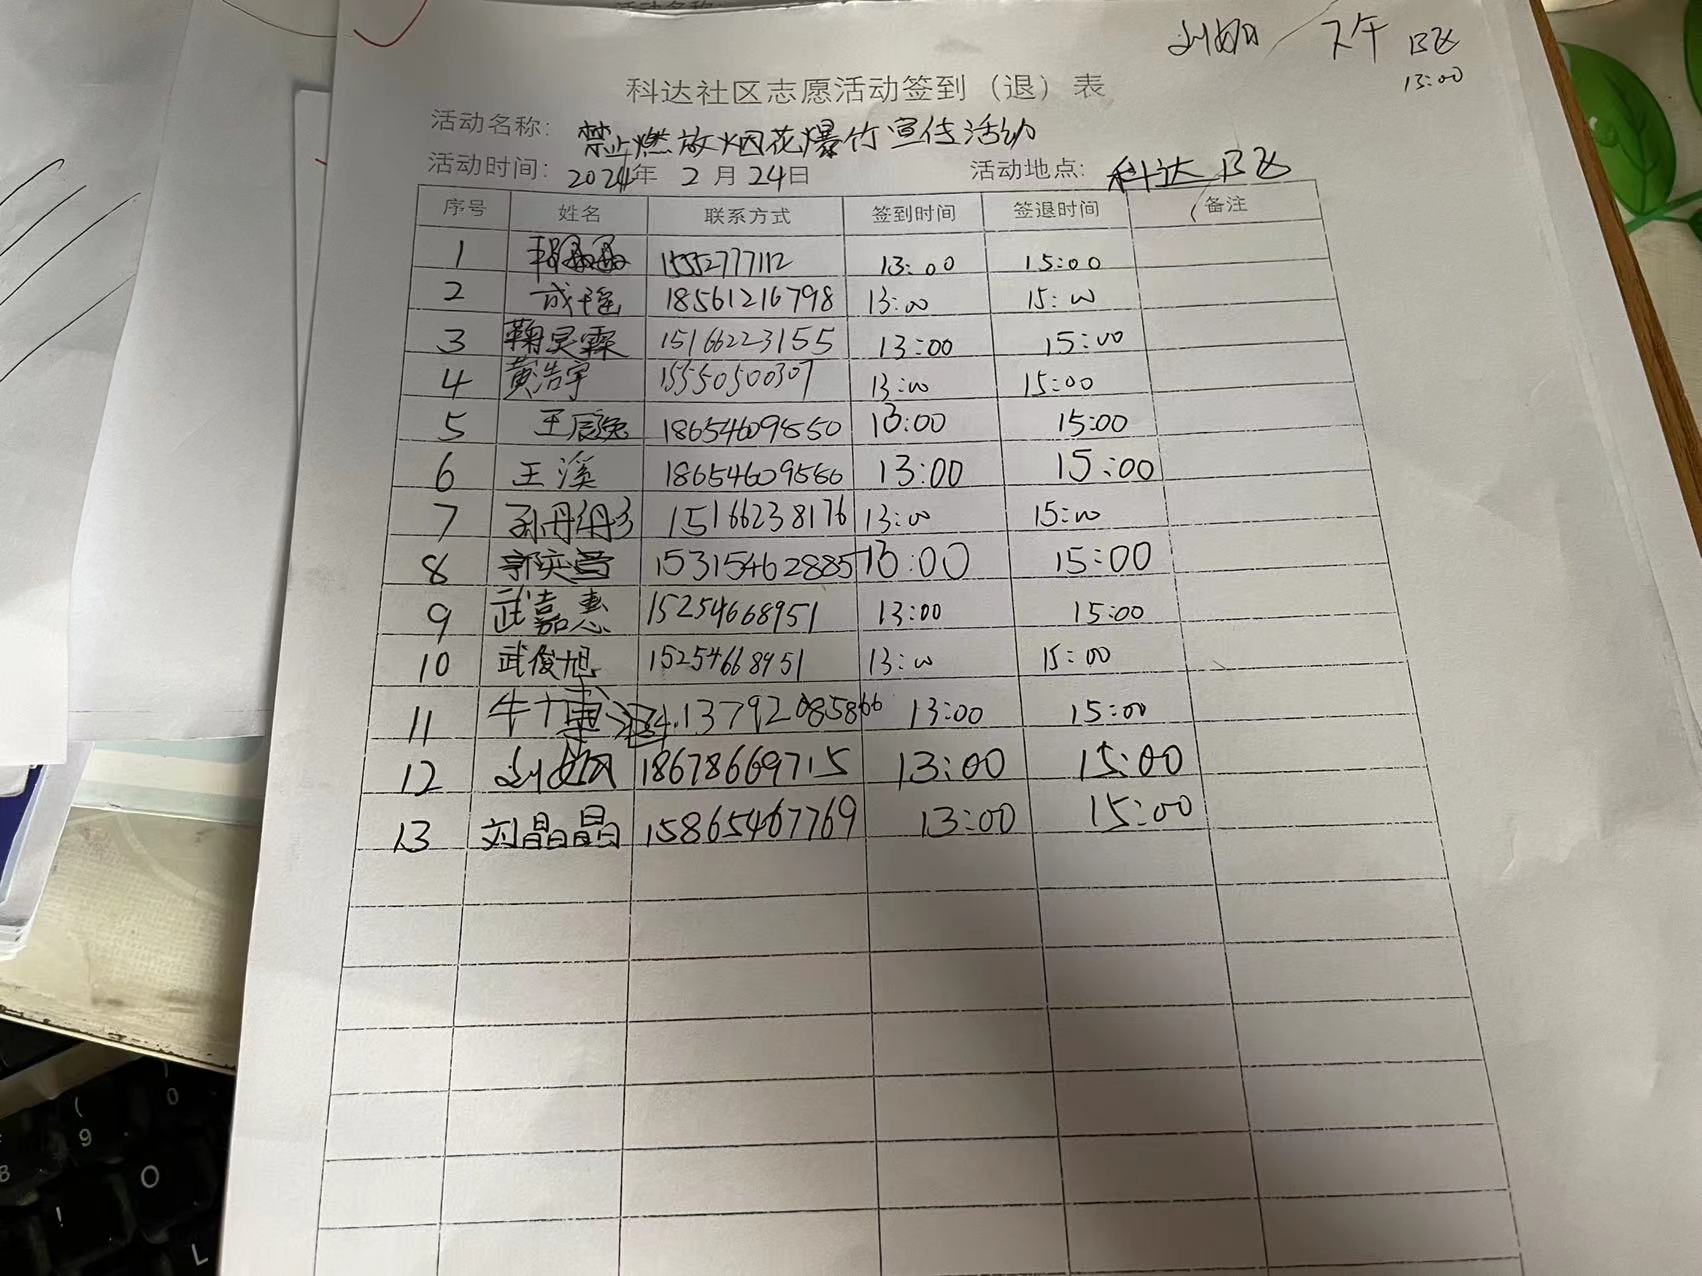 刘娟 下午 B区
13:00
科达社区志愿活动签到（退）表
活动名称： 禁止燃放烟花爆竹宣传活动
活动时间： 2024年 2月24日 活动地点： 科达 B区
序号 姓名 联系方式 签到时间 签退时间 备注
1 15552777112 13:00 15:00
2 成瑶 18561216798 13:00 15:00
3 鞠昊霖 15166223155 13:00 15:00
4 黄浩宇 15550500307 13:00 15:00
5 王辰逸 18654609550 13:00 15:00
6 王溪 18654609550 13:00 15:00
7 孙丹丹 15166238176 13:00 15:00
8 郭奕 15315462885 13:00 15:00
9 武嘉惠 15254668951 13:00 15:00
10 武俊旭 15254668951 13:00 15:00
11 牛 13792085866 13:00 15:00
12 刘娟 18678669715 13:00 15:00
13 刘晶晶 15865467769 13:00 15:00